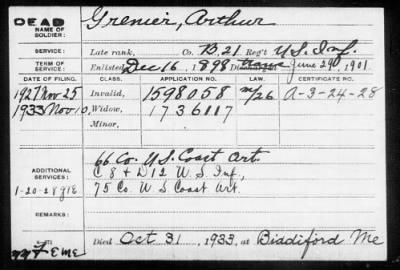 DEAD
NAME OF SOLDIER: Grenier, Arthur
SERVICE: Late rank, Co. B. 21 Reg't U.S. Inf.
TERM OF SERVICE: Enlisted Dec 16, 1898 June 29, 1901
DATE OF FILING. CLASS. APPLICATION NO. LAW. CERTIFICATE NO.
1927 Nov 25 Invalid, 1598058 A-3-24-28
1933 Nov 10, Widow, 1736117
Minor,
66 Co. U.S. Coast Art.
ADDITIONAL SERVICES: C 8 & D 12 U.S. Inf,
1-20-28 75 Co. U S Coast Art.
REMARKS:
Died Oct 31, 1933, at Biddiford Me